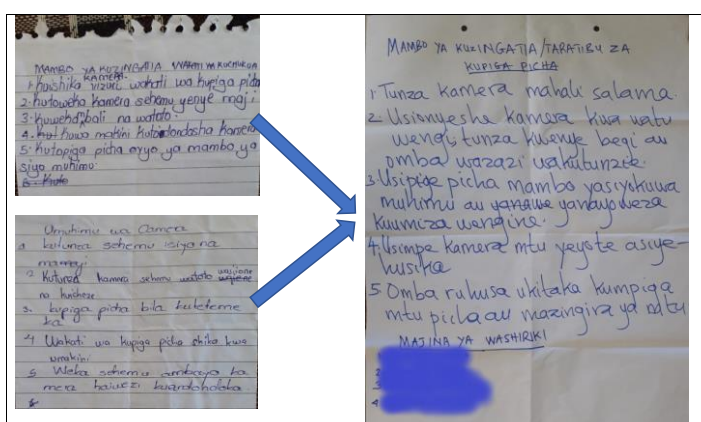 MAMBO YA KUZINGATIA WAKATI WA KUCHUKUA
KAMERA.
1. kuishika vizuri wakati wa kupiga picha
2. kutoweka kamera sehemu yenye maji
3. kuweka mbali na watoto.
4. kuwa makini kutoidondosha kamera
5. kutopiga picha ovyo ya mambo ya
siyo muhimu.
Umuhimu wa Camera
kutunza sehemu isiyo na
maji
2 Kutunza kamera sehemu watoto wasiione
na kuichezea
3. kupiga picha bila kuteteme
ka
4 Wakati wa kupiga picha shika kwa
umakini
5 Weka sehemu ambayo ka
mera haiwezi kudondoka
MAMBO YA KUZINGATIA/TARATIBU ZA
KUPIGA PICHA
1. Tunza kamera mahali salama.
2. Usionyeshe kamera kwa watu
wengi, tunza kwenye begi au
omba wazazi wakutunzie.
3. Usipige picha mambo yasiyokuwa
muhimu au yanayoweza
kuumiza wengine.
4. Usimpe kamera mtu yeyote asiye-
husika
5. Omba ruhusa ukitaka kumpiga
mtu picha au mazingira ya mtu
MAJINA YA WASHIRIKI
2
3
4